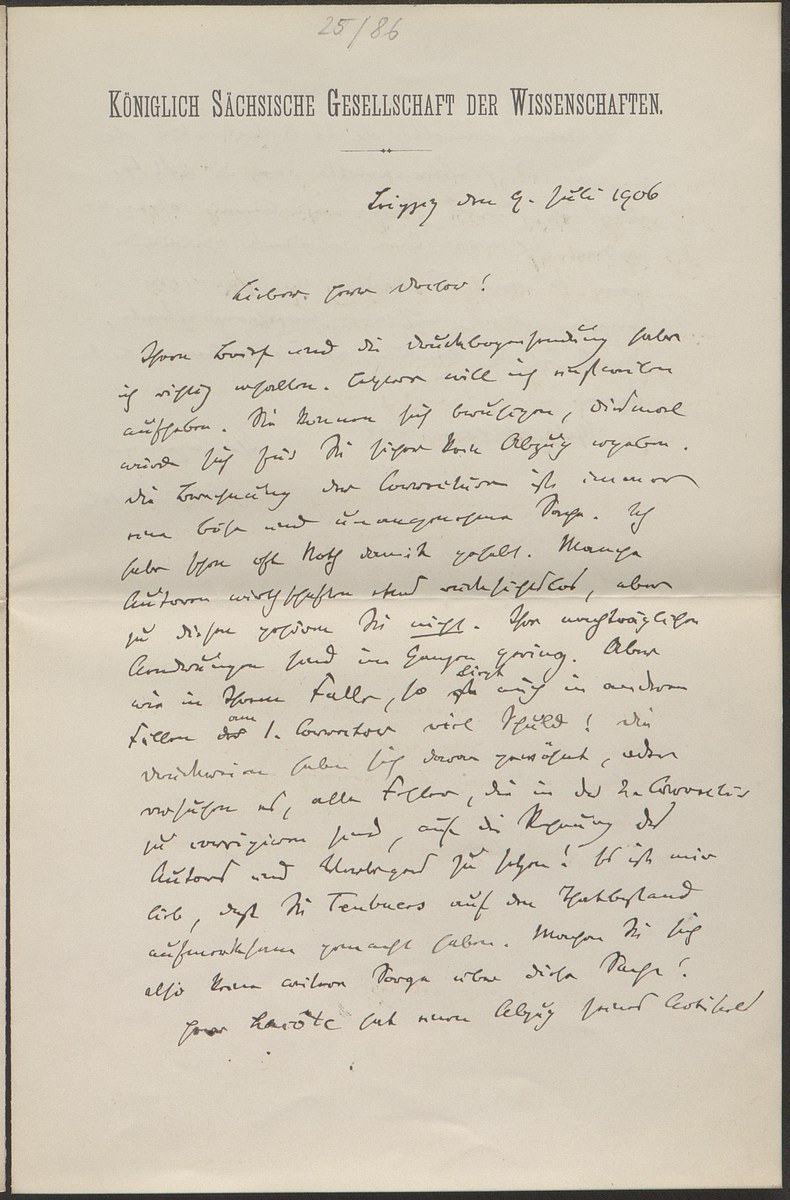 25/86
KÖNIGLICH SÄCHSISCHE GESELLSCHAFT DER WISSENSCHAFTEN.
Leipzig den 9. Juli 1906
Lieber Herr Doctor!
Ihren Brief und die Druckbogensendung habe
ich richtig erhalten. Letztere will ich einstweilen
aufheben. Sie können sich beruhigen, diesmal
würde sich für Sie sicher kein Abzug ergeben.
Die Berechnung der Correcturen ist immer
eine böse und unangenehme Sache. Ich
habe schon oft Noth damit gehabt. Manche
Autoren wirthschaften rücksichtslos, aber
zu diesen gehören Sie nicht. Ihre nachträglichen
Aenderungen sind im Ganzen gering. Aber
wie in Ihrem Falle, so liegt auch in anderen
Fällen am 1. Corrector viel Schuld! Die
Druckereien haben sich daran gewöhnt, oder
versuchen es, alle Fehler, die in der 2n Correctur
zu corrigieren sind, auf die Rechnung des
Autors und Verlegers zu setzen! Es ist mir
lieb, daß Sie Teubners auf den Thatbestand
aufmerksam gemacht haben. Machen Sie sich
also keine weitere Sorge über diese Sache!
Herr hat einen Abzug seines Artikels